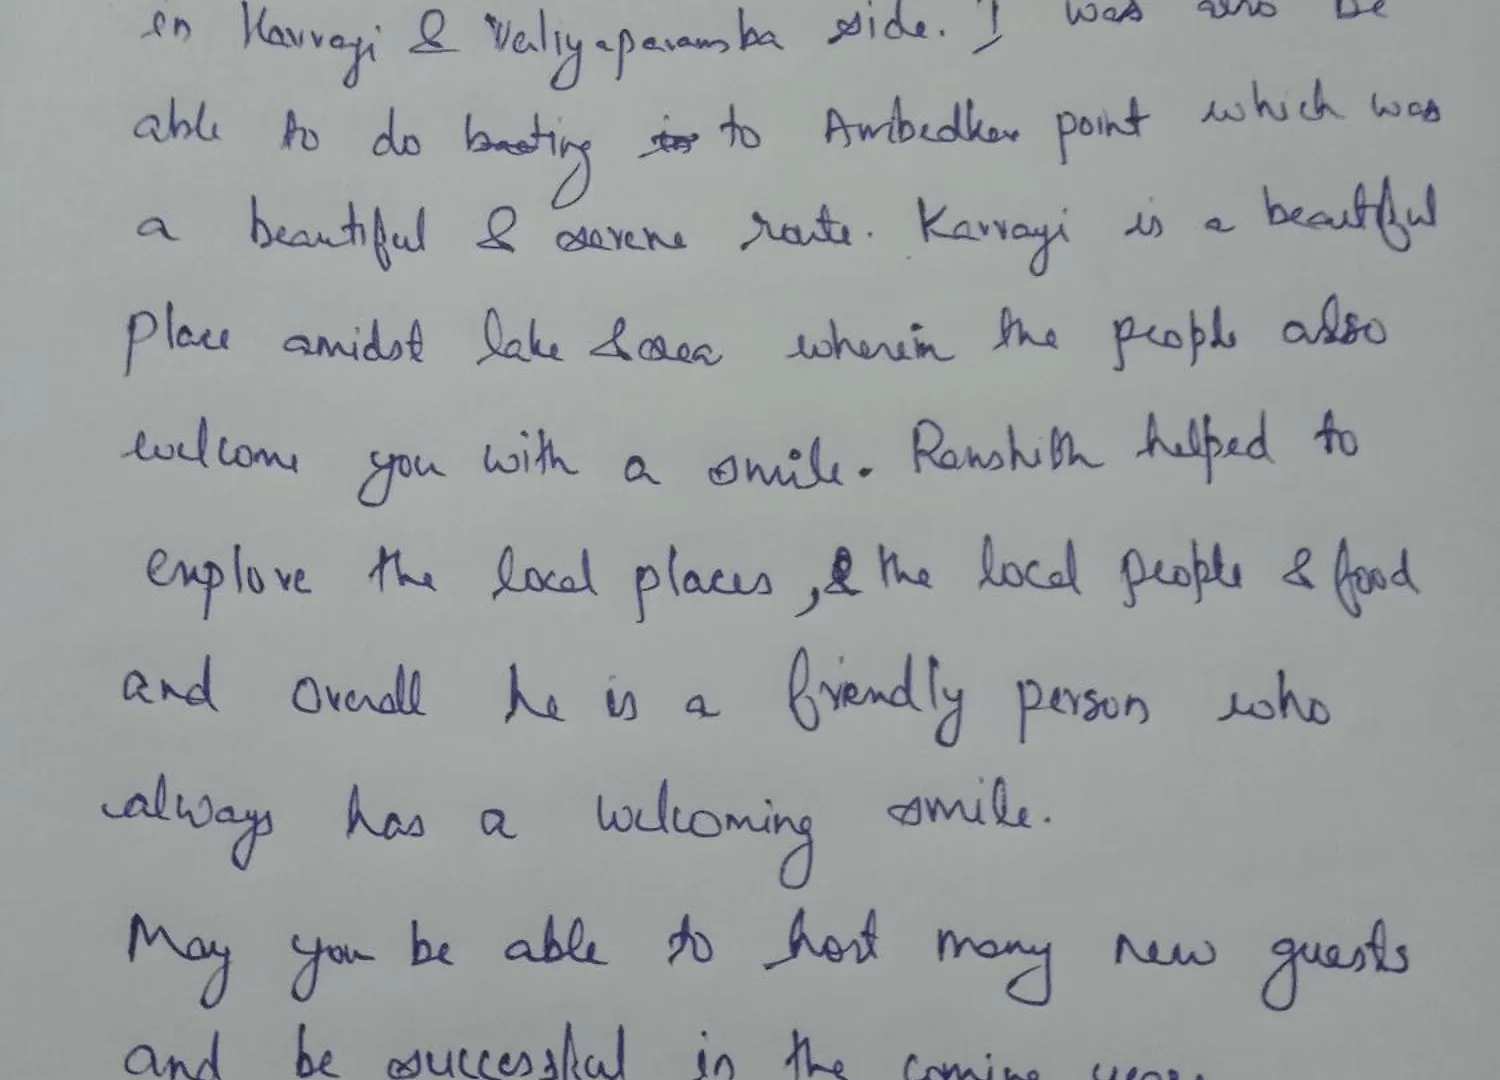 in Kavvayi & Valiyaparamba side. I was also be
able to do boating to Ambedkar point which was
a beautiful & serene route. Kavvayi is a beautiful
place amidst lake & sea wherein the people also
welcome you with a smile. Ranshith helped to
explore the local places, & the local people & food
and overall he is a friendly person who
always has a welcoming smile.
May you be able to host many new guests
and be successful in the coming years.